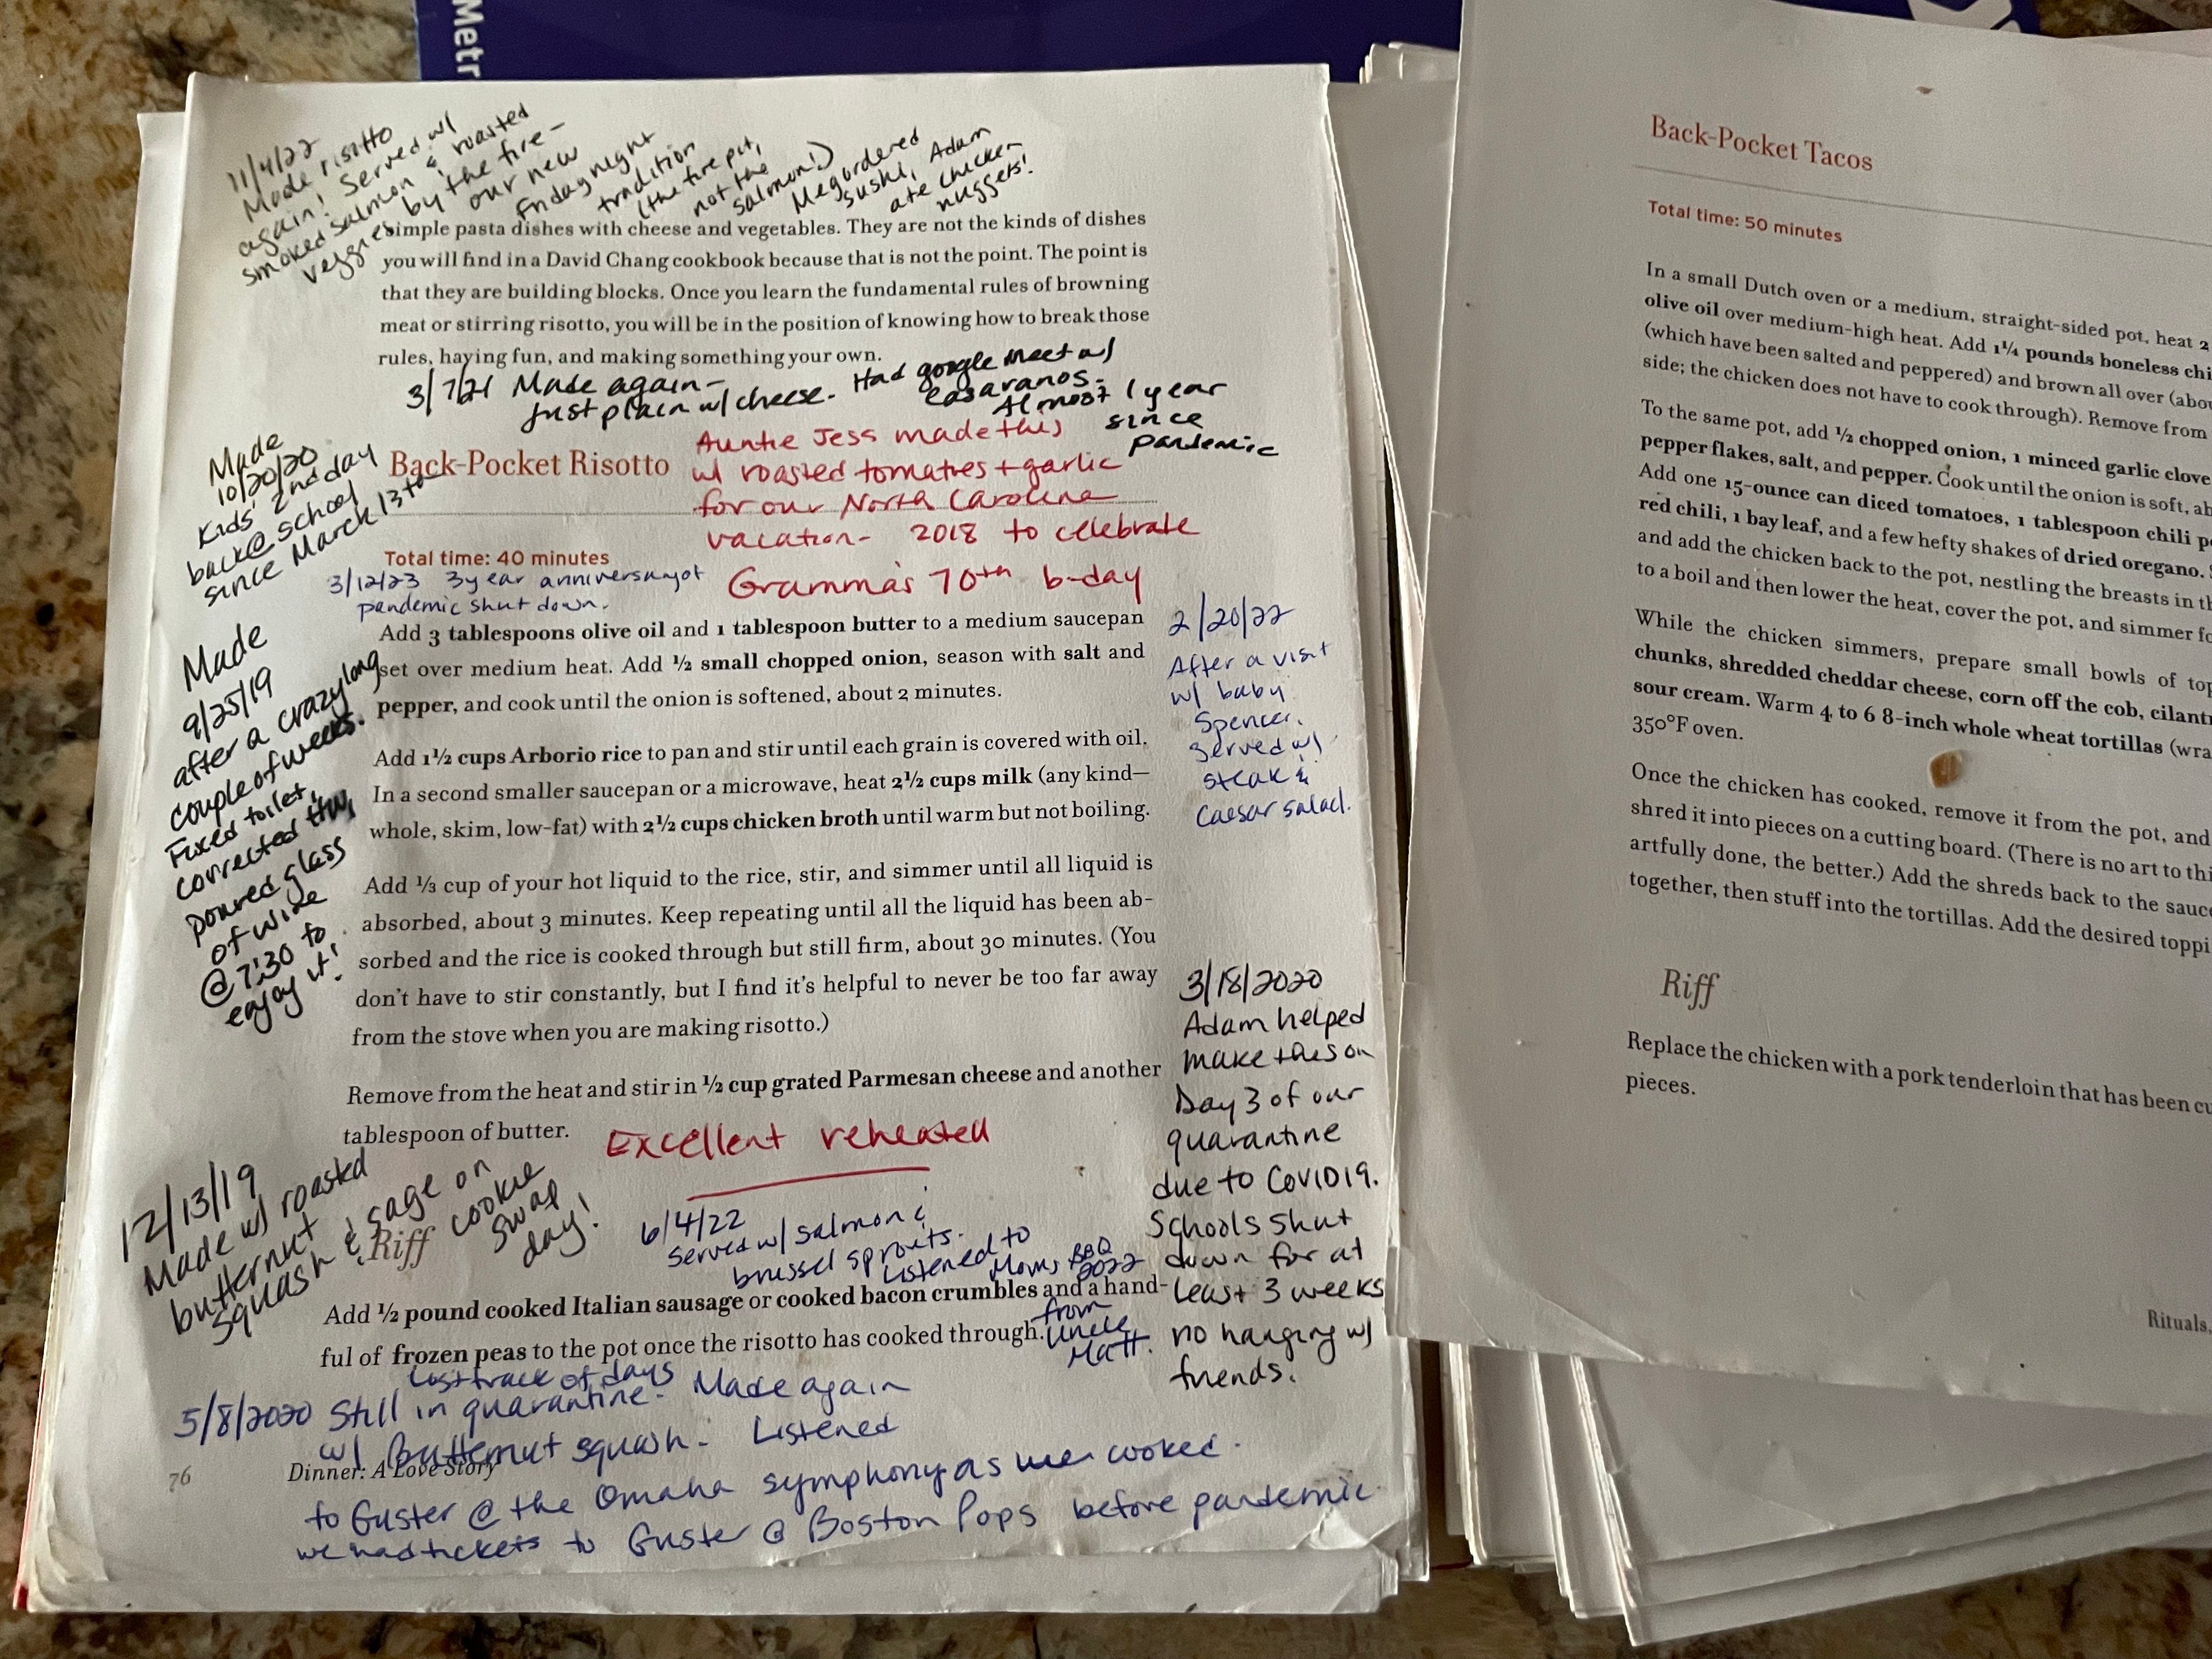 Metr
11/4/22
Made risotto
again! Served w/
smoked salmon & roasted
veggies by the fire –
our new
Friday night
tradition
(the fire pit,
not the
salmon!)
Meg ordered
sushi, Adam
ate chicken
nuggets!
simple pasta dishes with cheese and vegetables. They are not the kinds of dishes
you will find in a David Chang cookbook because that is not the point. The point is
that they are building blocks. Once you learn the fundamental rules of browning
meat or stirring risotto, you will be in the position of knowing how to break those
rules, having fun, and making something your own.
3/7/21 Made again –
Just plain w/ cheese. Had google Meet w/
Casaranos.
Almost 1 year
since
pandemic
Made
10/20/20
Kids' 2nd day
back @ school
since March 13th
Back-Pocket Risotto
Auntie Jess made this
w/ roasted tomatoes + garlic
for our North Carolina
vacation - 2018 to celebrate
Gramma's 70th b-day
Total time: 40 minutes
3/12/23 3 year anniversary of
pandemic shut down.
Add 3 tablespoons olive oil and 1 tablespoon butter to a medium saucepan
set over medium heat. Add ½ small chopped onion, season with salt and
pepper, and cook until the onion is softened, about 2 minutes.
Add 1½ cups Arborio rice to pan and stir until each grain is covered with oil.
In a second smaller saucepan or a microwave, heat 2½ cups milk (any kind—
whole, skim, low-fat) with 2½ cups chicken broth until warm but not boiling.
Add ⅓ cup of your hot liquid to the rice, stir, and simmer until all liquid is
absorbed, about 3 minutes. Keep repeating until all the liquid has been ab-
sorbed and the rice is cooked through but still firm, about 30 minutes. (You
don't have to stir constantly, but I find it's helpful to never be too far away
from the stove when you are making risotto.)
Remove from the heat and stir in ½ cup grated Parmesan cheese and another
tablespoon of butter.
Made
9/25/19
after a crazy long
couple of weeks.
Fixed toilet,
corrected HW,
poured glass
of wine
@ 7:30 to
enjoy it!
2/20/22
After a visit
w/ baby
Spencer.
Served w/
steak &
Caesar salad.
Excellent reheated
12/13/19
Made w/ roasted
butternut
squash & sage on
cookie
swap
day!
Riff
6/4/22
Served w/ salmon &
brussel sprouts.
Listened to
Moms BBQ
2022
from
Uncle
Matt.
3/18/2020
Adam helped
make this on
Day 3 of our
quarantine
due to COVID19.
Schools shut
down for at
least 3 weeks
no hanging w/
friends.
Add ½ pound cooked Italian sausage or cooked bacon crumbles and a hand-
ful of frozen peas to the pot once the risotto has cooked through.
Lost track of days
5/8/2020 Still in quarantine. Made again
w/ Butternut squash. Listened
to Guster @ the Omaha symphony as we cooked.
we had tickets to Guster @ Boston Pops before pandemic.
76
Dinner: A Love Story
Back-Pocket Tacos
Total time: 50 minutes
In a small Dutch oven or a medium, straight-sided pot, heat 2
olive oil over medium-high heat. Add 1¼ pounds boneless chi
(which have been salted and peppered) and brown all over (abou
side; the chicken does not have to cook through). Remove from
To the same pot, add ½ chopped onion, 1 minced garlic clove
pepper flakes, salt, and pepper. Cook until the onion is soft, ab
Add one 15-ounce can diced tomatoes, 1 tablespoon chili p
red chili, 1 bay leaf, and a few hefty shakes of dried oregano.
and add the chicken back to the pot, nestling the breasts in th
to a boil and then lower the heat, cover the pot, and simmer fo
While the chicken simmers, prepare small bowls of top
chunks, shredded cheddar cheese, corn off the cob, cilant
sour cream. Warm 4 to 6 8-inch whole wheat tortillas (wra
350°F oven.
Once the chicken has cooked, remove it from the pot, and
shred it into pieces on a cutting board. (There is no art to thi
artfully done, the better.) Add the shreds back to the sauce
together, then stuff into the tortillas. Add the desired toppi
Riff
Replace the chicken with a pork tenderloin that has been cu
pieces.
Rituals,